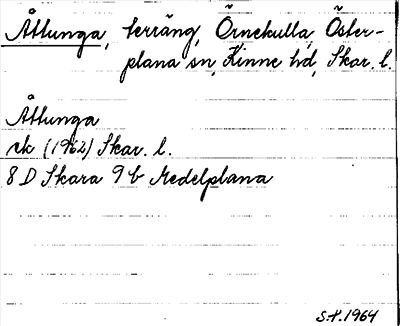 Åtlunga, terräng, Örnekulla, Öster-
plana sn, Kinne hd, Skar. l.
Åtlunga
ek (1962) Skar. l.
8 D Skara 9 b Medelplana
S.P. 1964